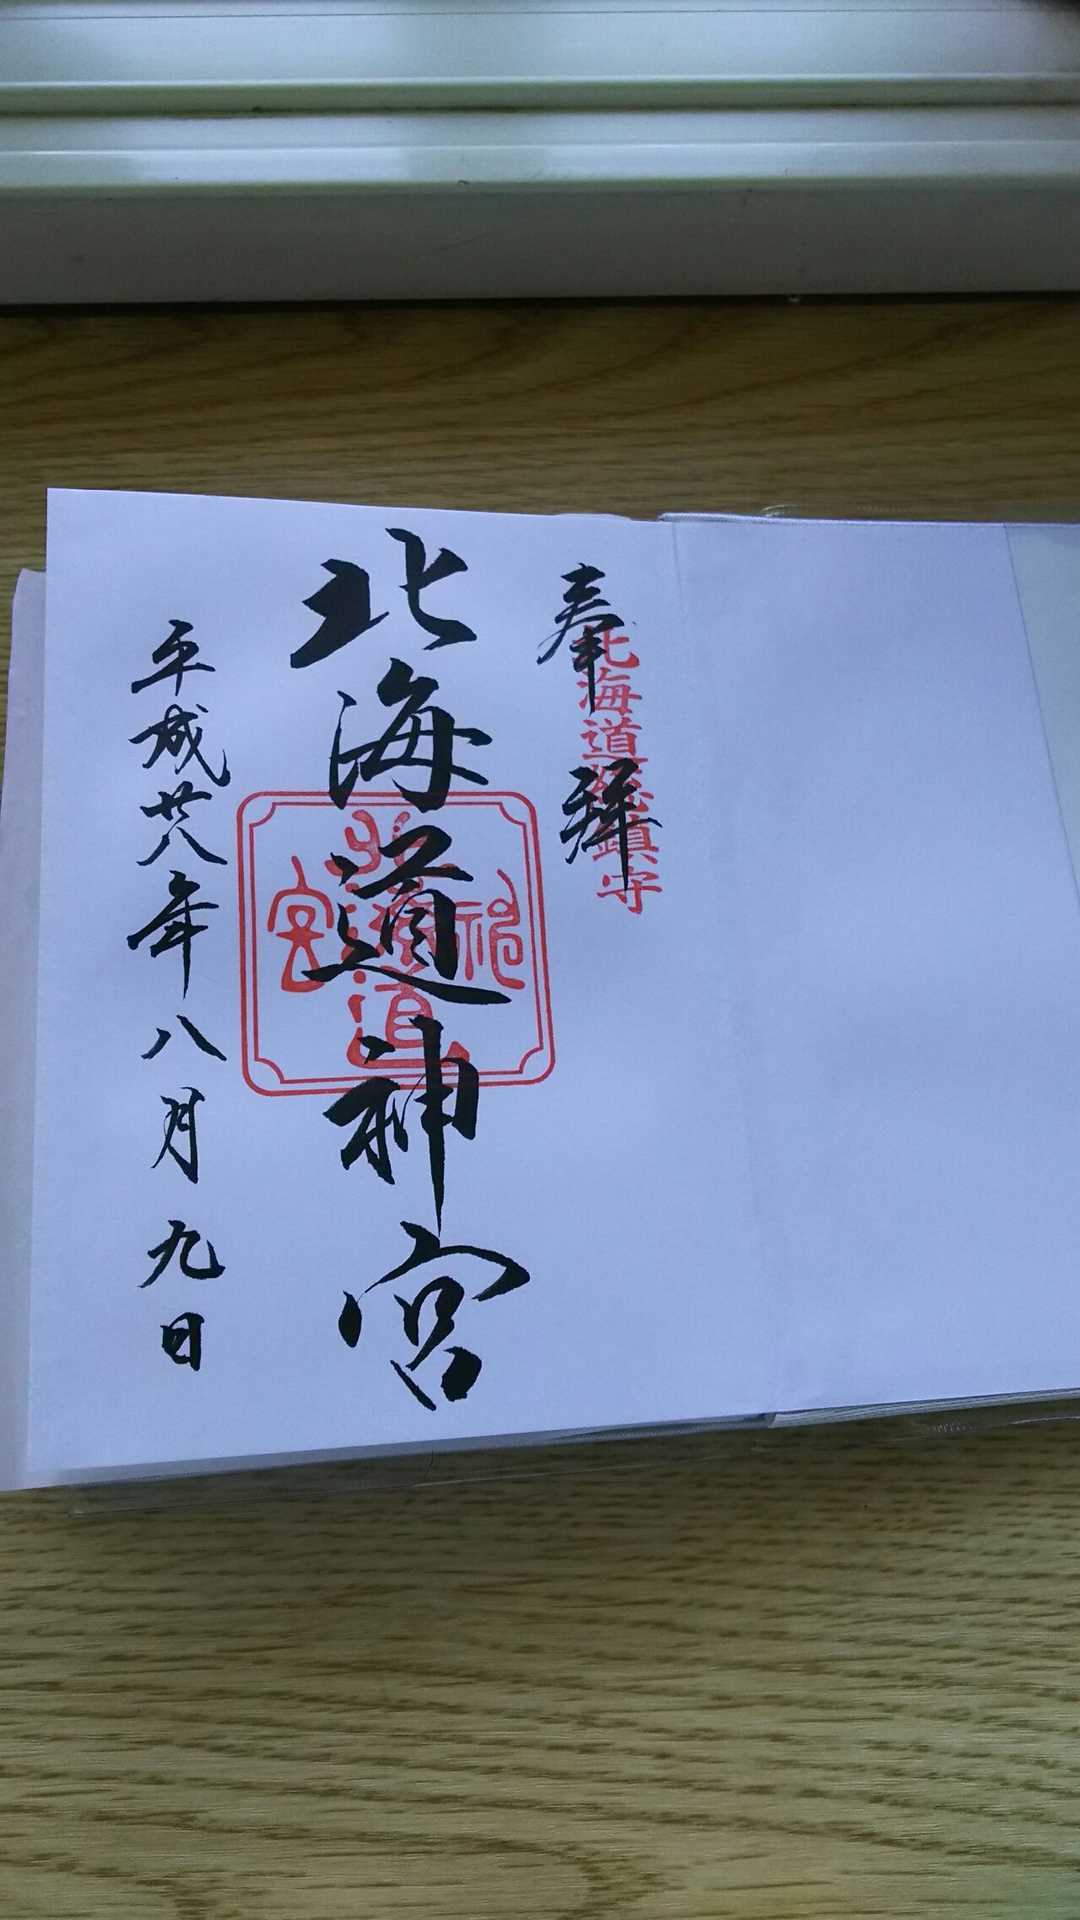 奉拝
北海道総鎮守
北海道神宮
北海道神宮
平成廿八年八月九日